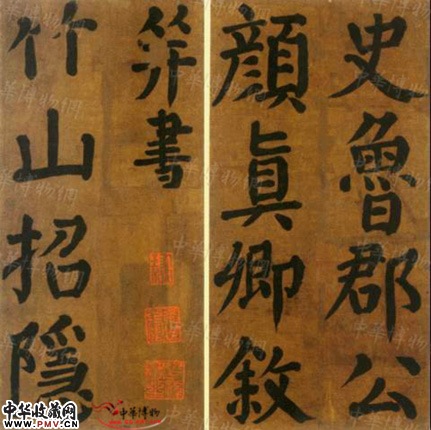 史魯郡公
顔眞卿敘
并書
竹山招隱
中华收藏网
WWW.PMV.CN
中華博物
中華博物網